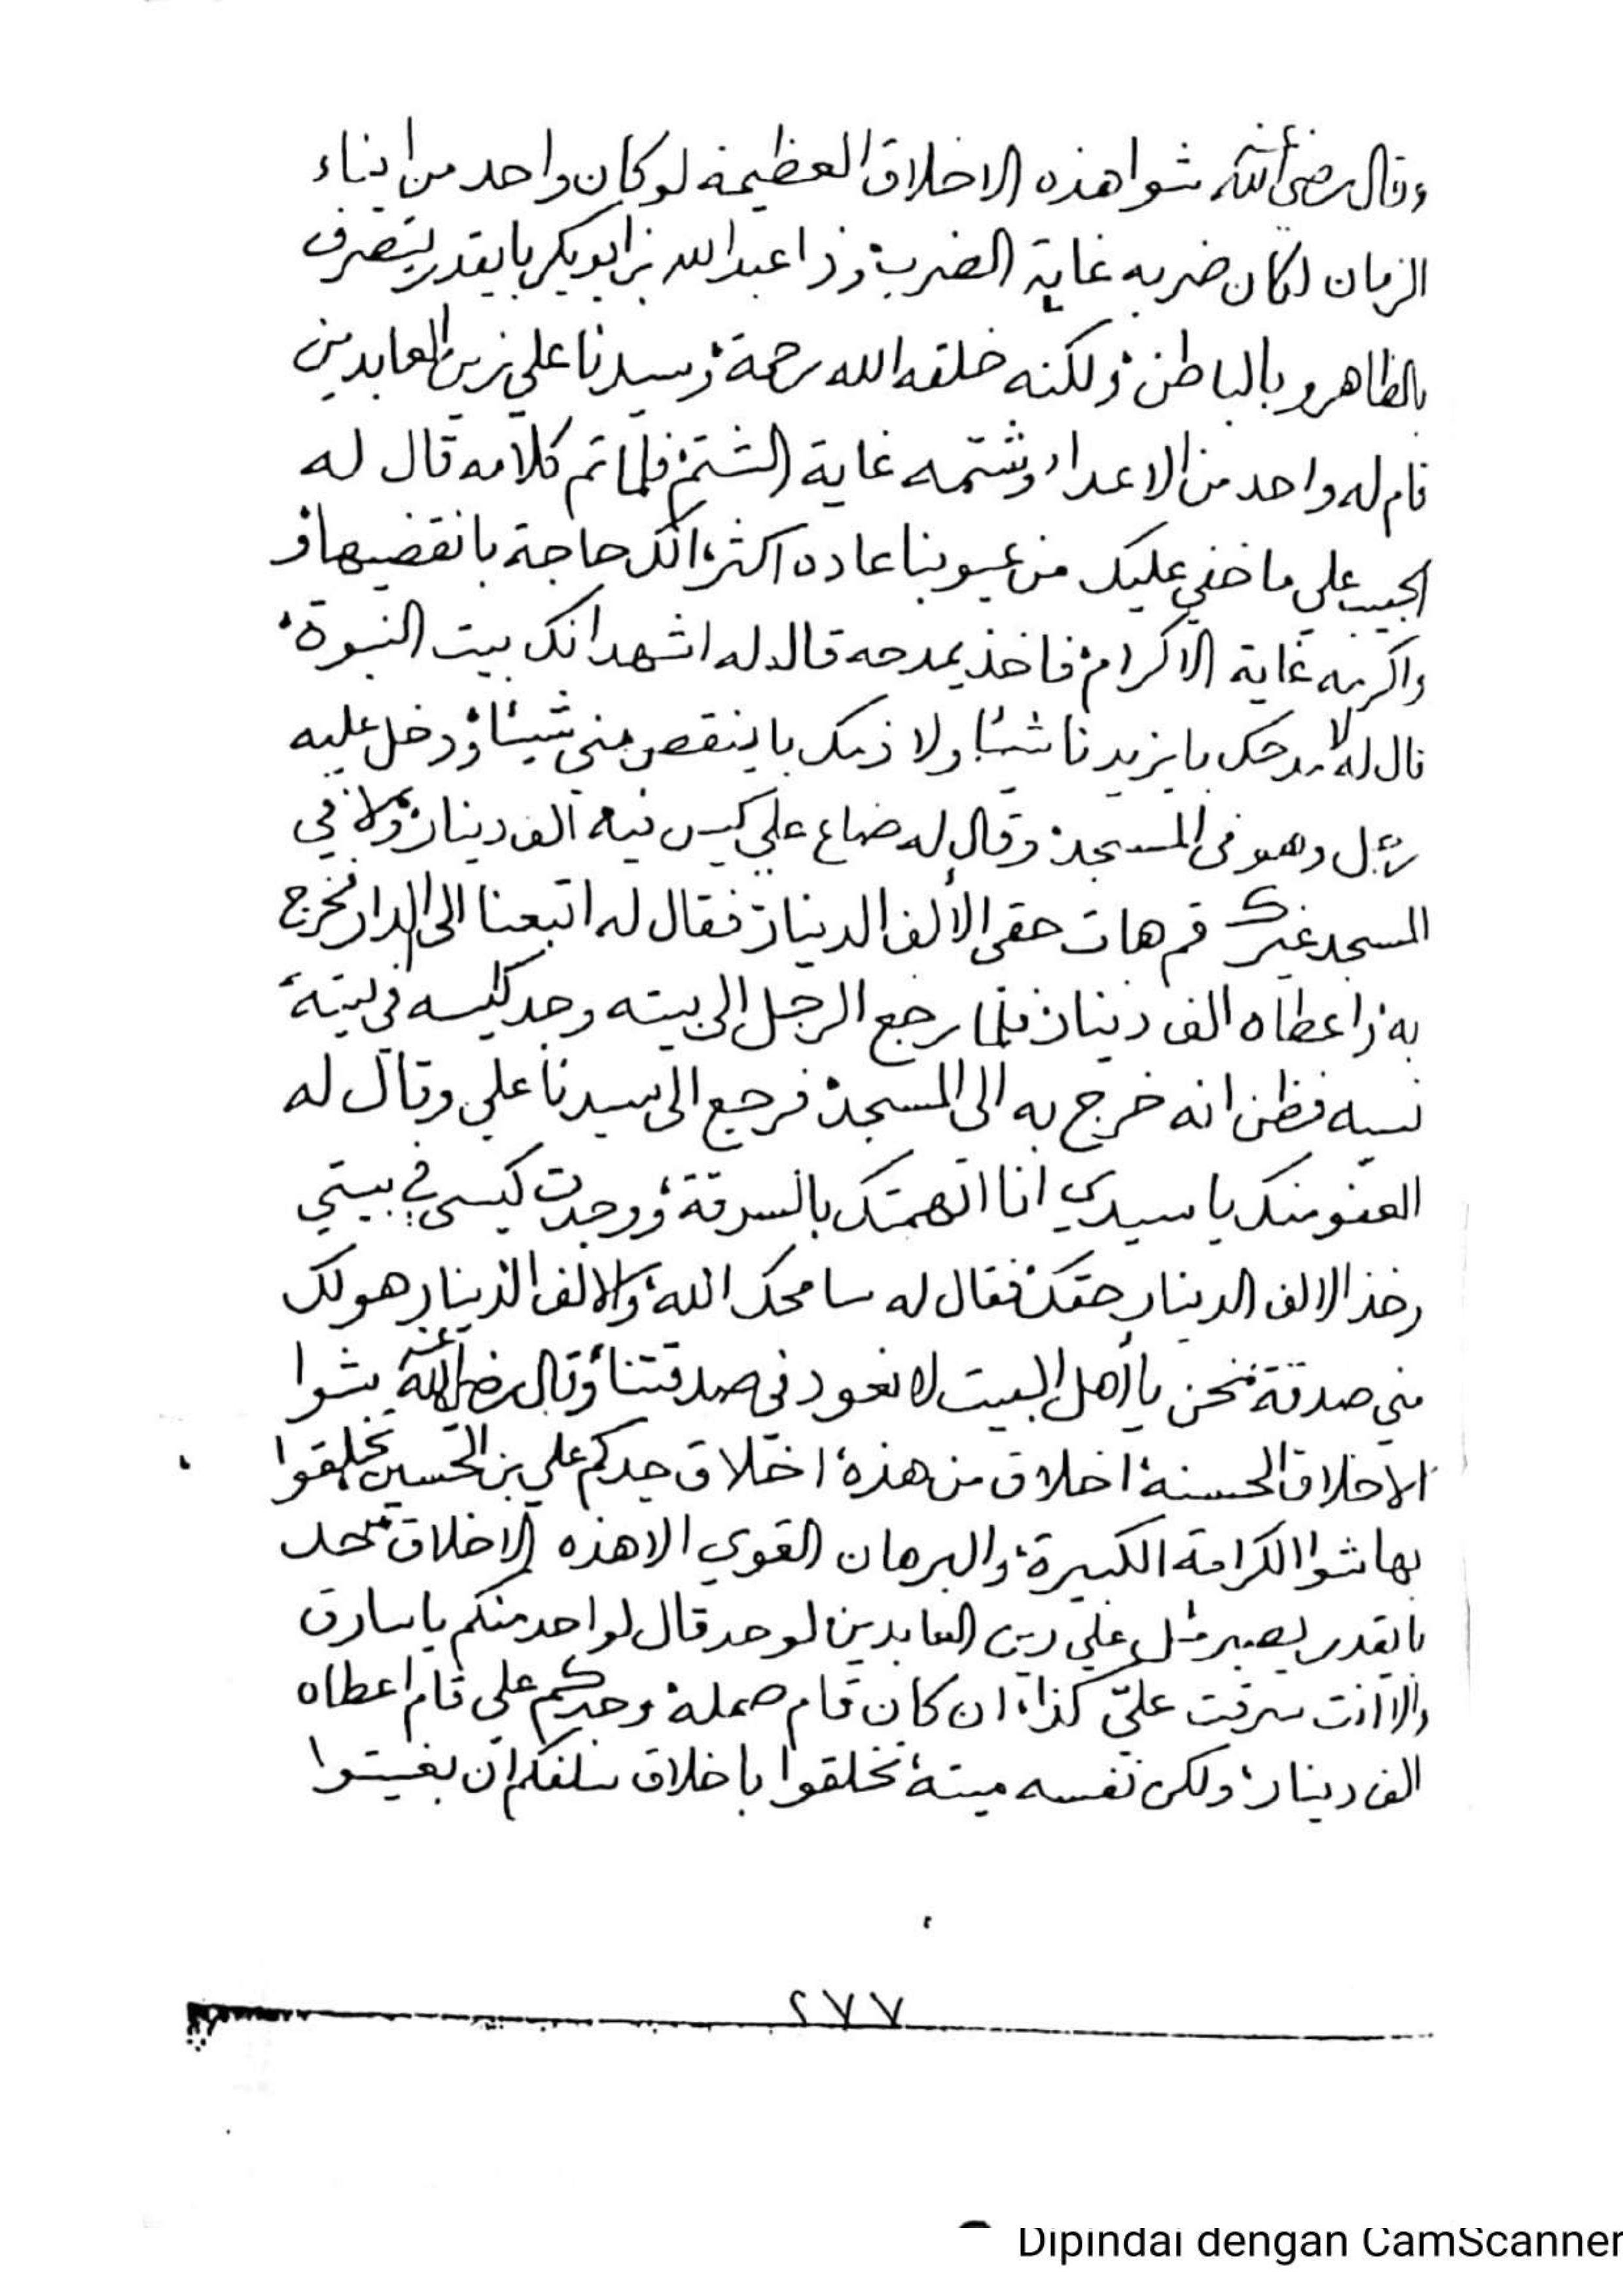 وقال رضي الله عنه شوا هذه الاخلاق العظيمة لو كان واحد من ابناء
الزمان لكان ضربه غاية الضرب، وذا عبدالله بن ابوبكر با يقدر يتصرف
بالظاهر و بالباطن، ولكنه خلقه الله رحمة، وسيدنا علي زين العابدين
قام له واحد من الاعداء وشتمه غاية الشتم، فلما تم كلامه قال له
الحبيب علي ما خفي عليك من عيوبنا عاده اكثر، الك حاجة با نقضيها،
واكرمه غاية الاكرام، فاخذ يمدحه قال له اشهد انك بيت النبوة،
قال له لا مدحك با يزيدنا شيئا ولا ذمك با ينقص مني شيئا، ودخل عليه
رجل وهو في المسجد، وقال له ضاع علي كيس فيه الف دينار، ولا في
المسجد غيرك قم هات حقي الألف الدينار، فقال له اتبعنا الى الدار فخرج
به، واعطاه الف دينار، فلما رجع الرجل الى بيته وجد كيسه في بيته،
نسيه فظن انه خرج به الى المسجد، فرجع الى سيدنا علي وقال له
العفو منك يا سيدي انا اتهمتك بالسرقة، ووجدت كيسي في بيتي
وخذ الالف الدينار حقك، فقال له سامحك الله، والالف الدينار هو لك
مني صدقة، نحن يا أهل البيت لا نعود في صدقتنا، وقال رضي الله عنه شوا
الاخلاق الحسنة، اخلاق من هذه، اخلاق جدكم علي بن الحسين، تخلقوا
بها شوا الكرامة الكبيرة، والبرهان القوي الا هذه الاخلاق، حد
با يقدر يصبر مثل علي زين العابدين لو حد قال لواحد منكم يا سارق
والا انت سرقت عليّ كذا، ان كان قام صمله، وجدكم علي قام اعطاه
الف دينار، ولكن نفسه ميتة، تخلقوا باخلاق سلفكم ان بغيتوا
٢٧٧
Dipindai dengan CamScanner